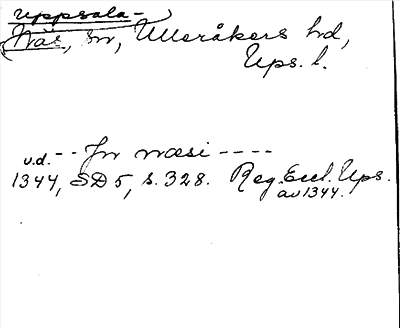 Uppsala-
Näs, sn, Ulleråkers hd,
Ups. l.
u.d. -- Jn næsi ----
1344, SD 5, s. 328. Reg. Eccl. Ups.
av 1344.